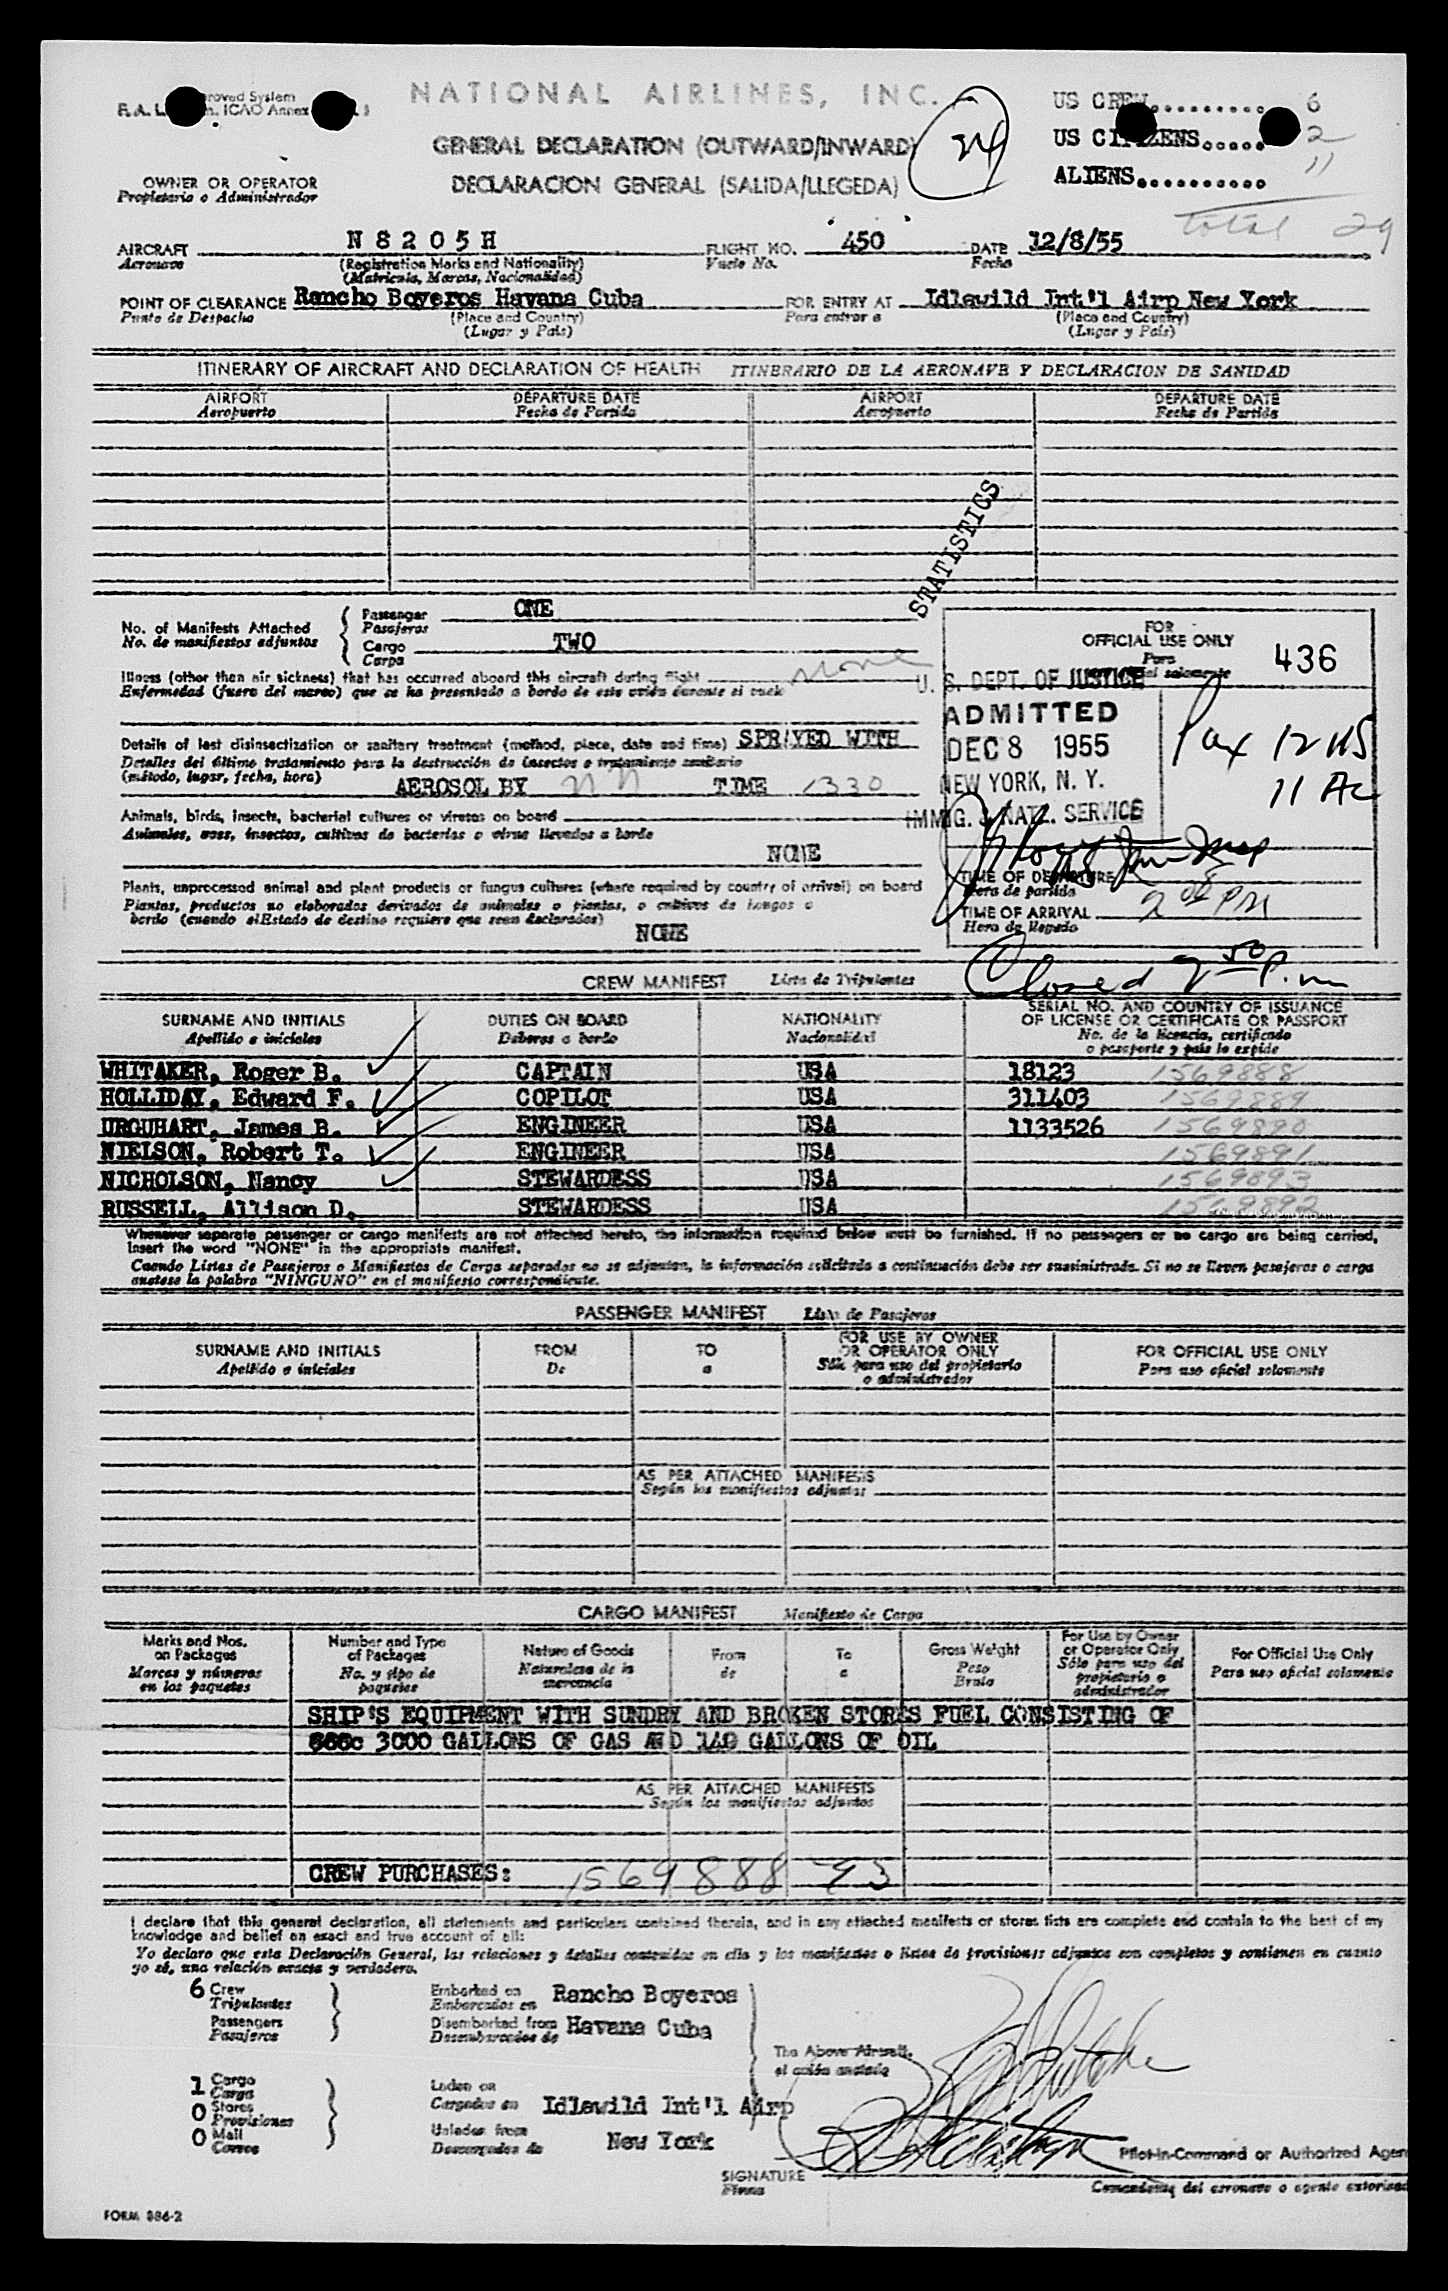 NATIONAL AIRLINES, INC.
GENERAL DECLARATION (OUTWARD/INWARD)
DECLARACION GENERAL (SALIDA/LLEGEDA)
24
US CREW.......... 6
US CITIZENS..... 2
ALIENS.......... 11
Total 29
OWNER OR OPERATOR
Propietario o Administrador
AIRCRAFT N8205H FLIGHT NO. 450 DATE 12/8/55
Aeronave (Registration Marks and Nationality) Vuelo No. Fecha
(Matricula, Marcas, Nacionalidad)
POINT OF CLEARANCE Rancho Boyeros Havana Cuba FOR ENTRY AT Idlewild Int'l Airp New York
Punto de Despacho (Place and Country) Para entrar a (Place and Country)
(Lugar y País) (Lugar y País)
ITINERARY OF AIRCRAFT AND DECLARATION OF HEALTH ITINERARIO DE LA AERONAVE Y DECLARACION DE SANIDAD
AIRPORT DEPARTURE DATE AIRPORT DEPARTURE DATE
Aeropuerto Fecha de Partida Aeropuerto Fecha de Partida
STATISTICS
No. of Manifests Attached Passenger ONE
No. de manifiestos adjuntos Pasajeros
Cargo TWO
Carga
Illness (other than air sickness) that has occurred aboard this aircraft during flight None
Enfermedad (fuera del mareo) que se ha presentado a bordo de este avión durante el vuelo
Details of last disinsectization or sanitary treatment (method, place, date and time) SPRAYED WITH
Detalles del último tratamiento para la destrucción de insectos o tratamiento sanitario
(método, lugar, fecha, hora) AEROSOL BY NN TIME 1330
Animals, birds, insects, bacterial cultures or viruses on board
Animales, aves, insectos, cultivos de bacterias o virus llevados a bordo
NONE
Plants, unprocessed animal and plant products or fungus cultures (where required by country of arrival) on board
Plantas, productos no elaborados derivados de animales o plantas, o cultivos de hongos a
bordo (cuando el Estado de destino requiere que sean declarados)
NONE
FOR
OFFICIAL USE ONLY 436
Para
U. S. DEPT. OF JUSTICE
ADMITTED
DEC 8 1955
NEW YORK, N. Y.
IMMIG. & NATL. SERVICE
Pax 12 US
11 AL
TIME OF DEPARTURE
Hora de partida
TIME OF ARRIVAL 2 08 PM
Hora de llegada
Closed 2 50 p.m
CREW MANIFEST Lista de Tripulantes
SURNAME AND INITIALS DUTIES ON BOARD NATIONALITY SERIAL NO. AND COUNTRY OF ISSUANCE
OF LICENSE OR CERTIFICATE OR PASSPORT
Apellido e iniciales Deberes a bordo Nacionalidad No. de la licencia, certificado
o pasaporte y país lo expide
WHITAKER, Roger B. CAPTAIN USA 18123 1569888
HOLLIDAY, Edward F. COPILOT USA 311403 1569889
URQUHART, James B. ENGINEER USA 1133526 1569890
NIELSON, Robert T. ENGINEER USA 1569891
NICHOLSON, Nancy STEWARDESS USA 1569893
RUSSELL, Allison D. STEWARDESS USA 1569892
Whenever separate passenger or cargo manifests are not attached hereto, the information required below must be furnished. If no passengers or no cargo are being carried,
insert the word "NONE" in the appropriate manifest.
Cuando Listas de Pasajeros o Manifiestos de Carga separados no se adjuntan, la información solicitada a continuación debe ser suministrada. Si no se lleven pasajeros o carga
anotese la palabra "NINGUNO" en el manifiesto correspondiente.
PASSENGER MANIFEST Lista de Pasajeros
SURNAME AND INITIALS FROM TO FOR USE BY OWNER
OR OPERATOR ONLY FOR OFFICIAL USE ONLY
Apellido e iniciales De a Sólo para uso del propietario
o administrador Para uso oficial solamente
AS PER ATTACHED MANIFESTS
Según los manifiestos adjuntos
CARGO MANIFEST Manifiesto de Carga
Marks and Nos.
on Packages
Marcas y números
en los paquetes
Number and Type
of Packages
No. y tipo de
paquetes
Nature of Goods
Naturaleza de la
mercancía
From
de
To
a
Gross Weight
Peso
Bruto
For Use by Owner
or Operator Only
Sólo para uso del
propietario o
administrador
For Official Use Only
Para uso oficial solamente
SHIP'S EQUIPMENT WITH SUNDRY AND BROKEN STORES FUEL CONSISTING OF
3000 GALLONS OF GAS AND 140 GALLONS OF OIL
AS PER ATTACHED MANIFESTS
Según los manifiestos adjuntos
CREW PURCHASES: 1569888 - 93
I declare that this general declaration, all statements and particulars contained therein, and in any attached manifests or stores lists are complete and contain to the best of my
knowledge and belief an exact and true account of all:
Yo declaro que esta Declaración General, las relaciones y detalles contenidos en ella y los manifiestos o listas de provisiones adjuntos son completos y contienen en cuanto
yo sé, una relación exacta y verdadera.
6 Crew Embarked on Rancho Boyeros
Tripulantes Embarcados en
Passengers Disembarked from Havana Cuba
Pasajeros Desembarcados de
The Above Aircraft.
el avión anotado
1 Cargo Laden on
Carga Cargados en Idlewild Int'l Airp
0 Stores
Provisiones
0 Mail Unladen from New York
Correos Descargados de
Pilot-in-Command or Authorized Agen
SIGNATURE
Firma Comandante del aeronave o agente autorizad
FORM 886-2